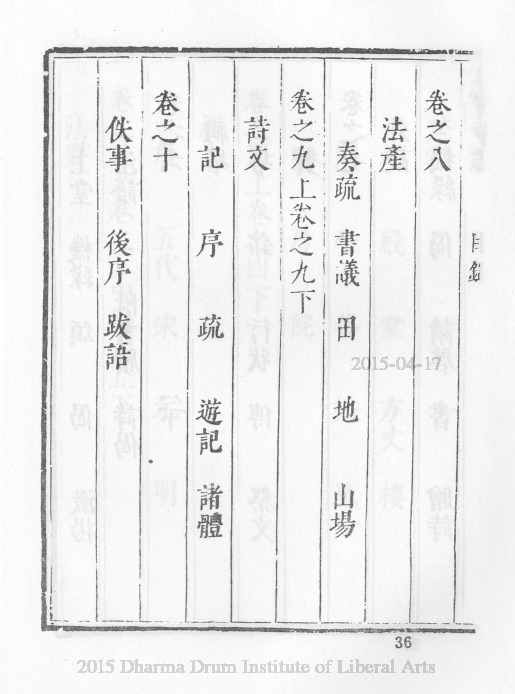 目錄
卷之八
法產
奏疏 書議 田 地 山場
卷之九上卷之九下
詩文
記 序 疏 遊記 諸體
卷之十
佚事 後序 跋語
2015-04-17
36
2015 Dharma Drum Institute of Liberal Arts